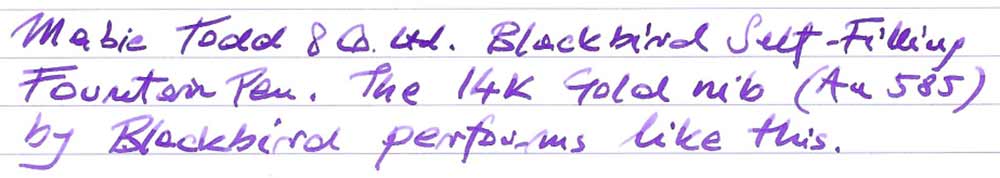 Mabie Todd & Co. Ltd. Blackbird Self-Filling
Fountain Pen. The 14K Gold nib (Au 585)
by Blackbird performs like this.